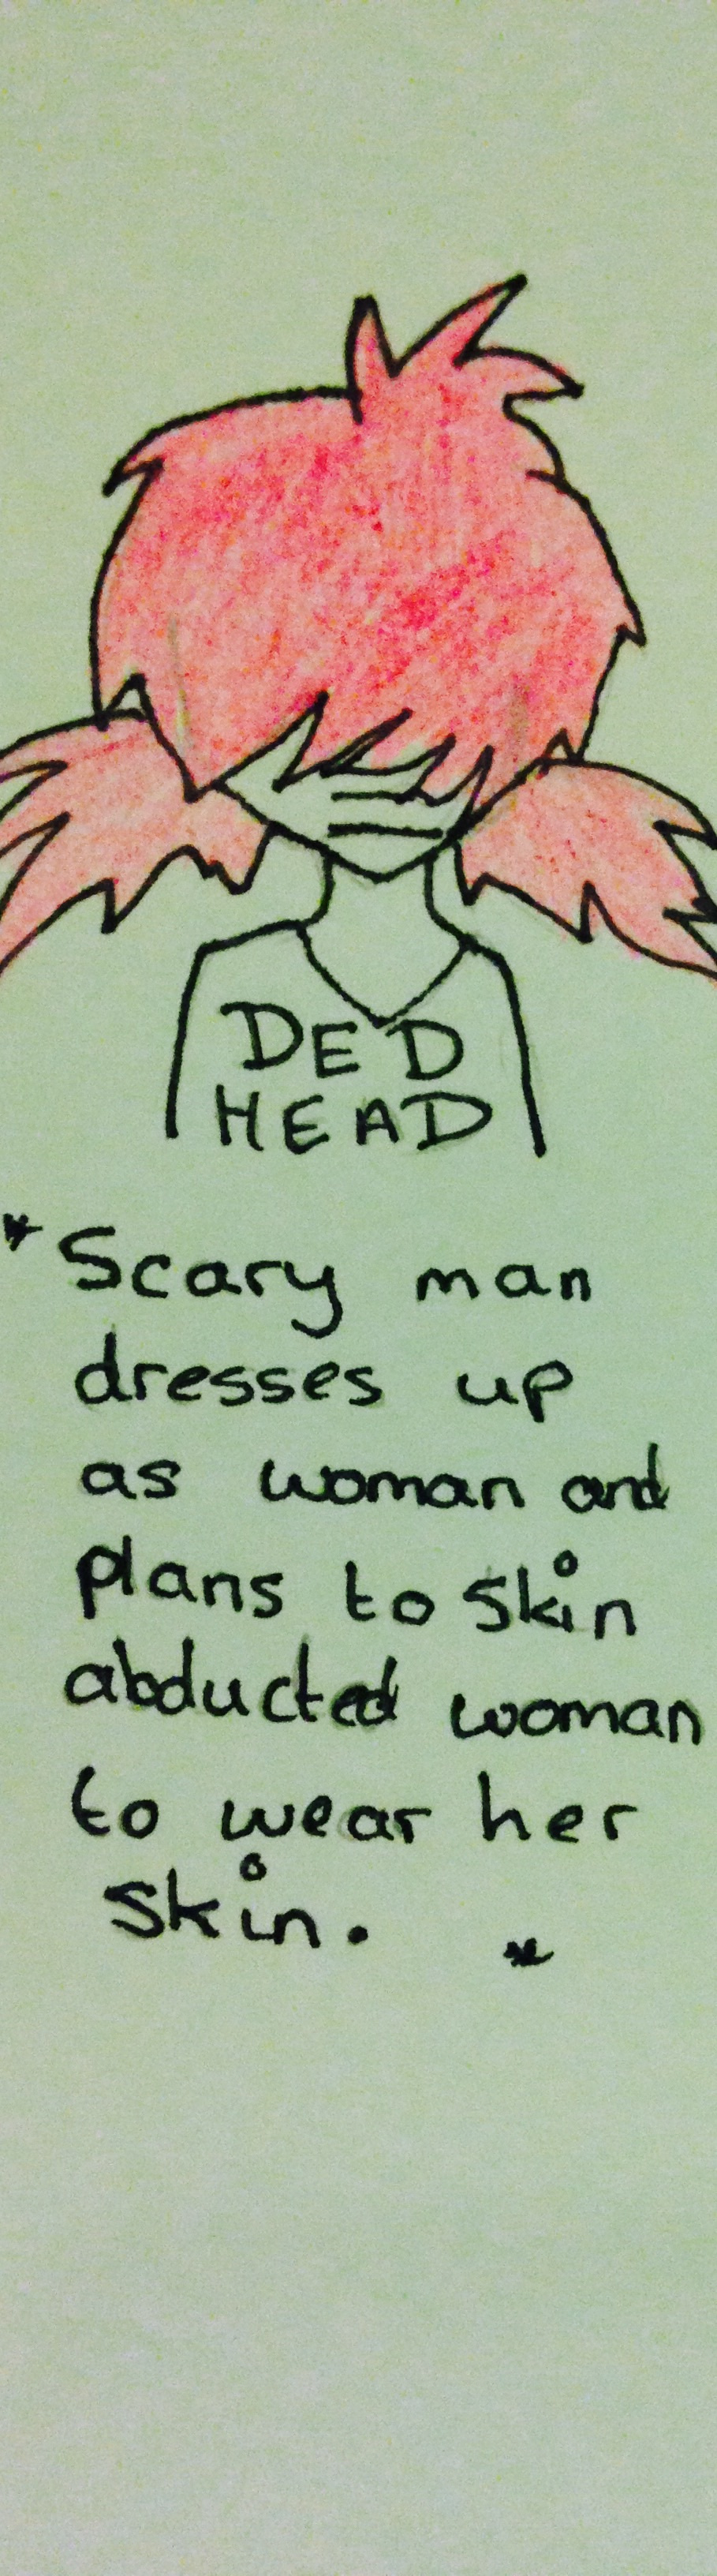 DED
HEAD
* Scary man
dresses up
as woman and
plans to skin
abducted woman
to wear her
skin. *